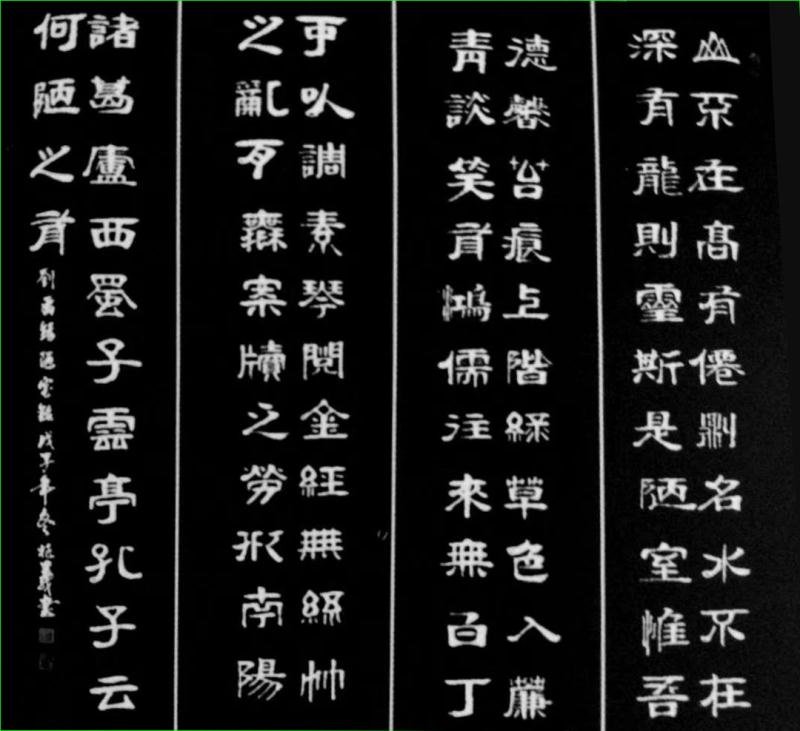 山不在高有僊則名水不在
深有龍則靈斯是陋室惟吾
德馨苔痕上階綠草色入簾
青談笑有鴻儒往來無白丁
可以調素琴閱金經無絲竹
之亂耳無案牘之勞形南陽
諸葛廬西蜀子雲亭孔子云
何陋之有
劉禹錫陋室銘戊子年冬書